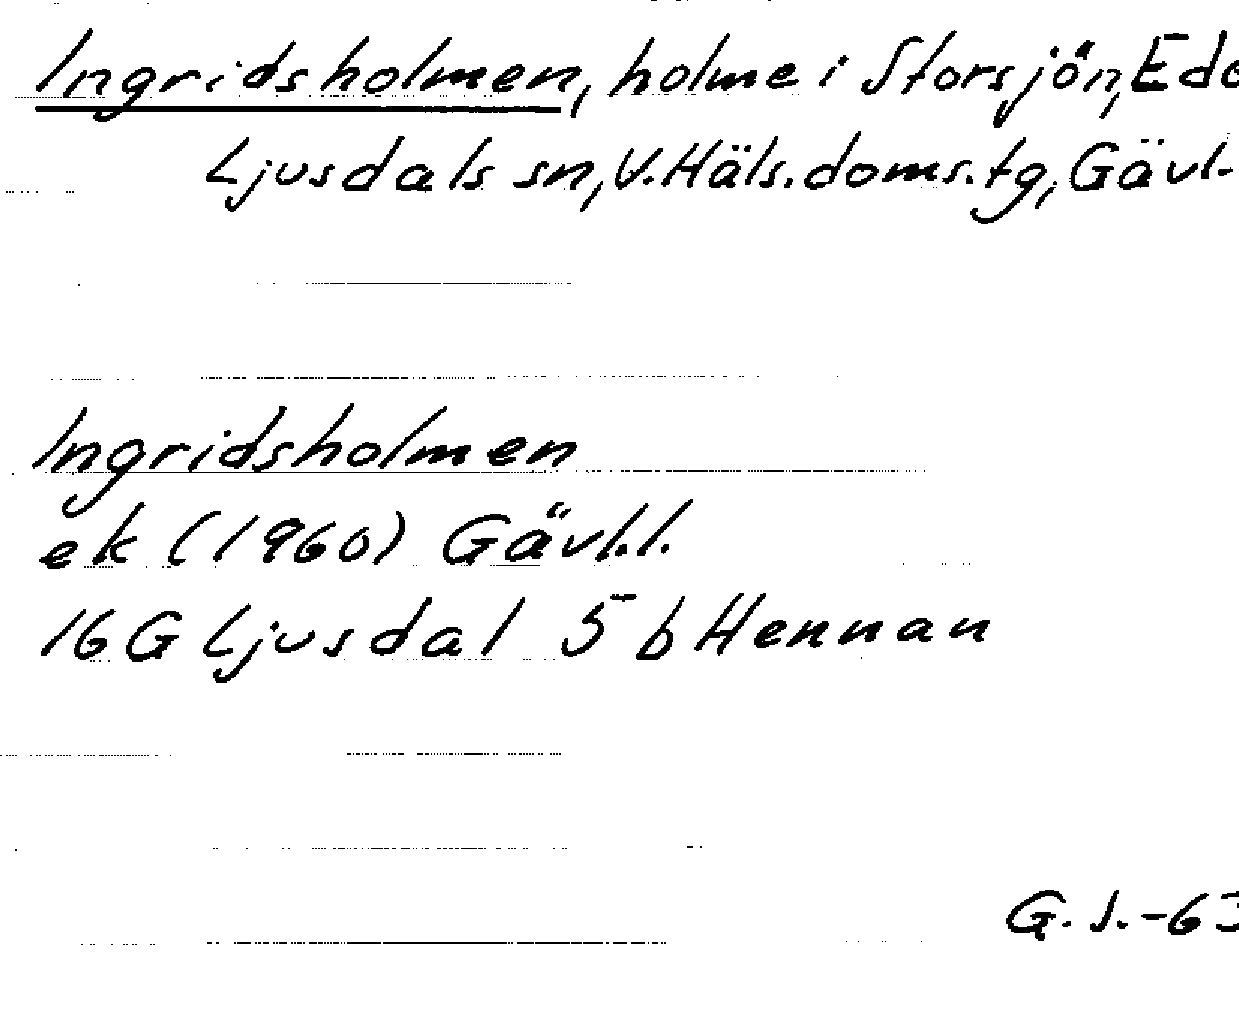 Ingridsholmen, holme i Storsjön, Ede
Ljusdals sn, V. Häls. doms. tg, Gävl.
Ingridsholmen
ek (1960) Gävl.l.
16 G Ljusdal 5 b Hennan
G. S. -63